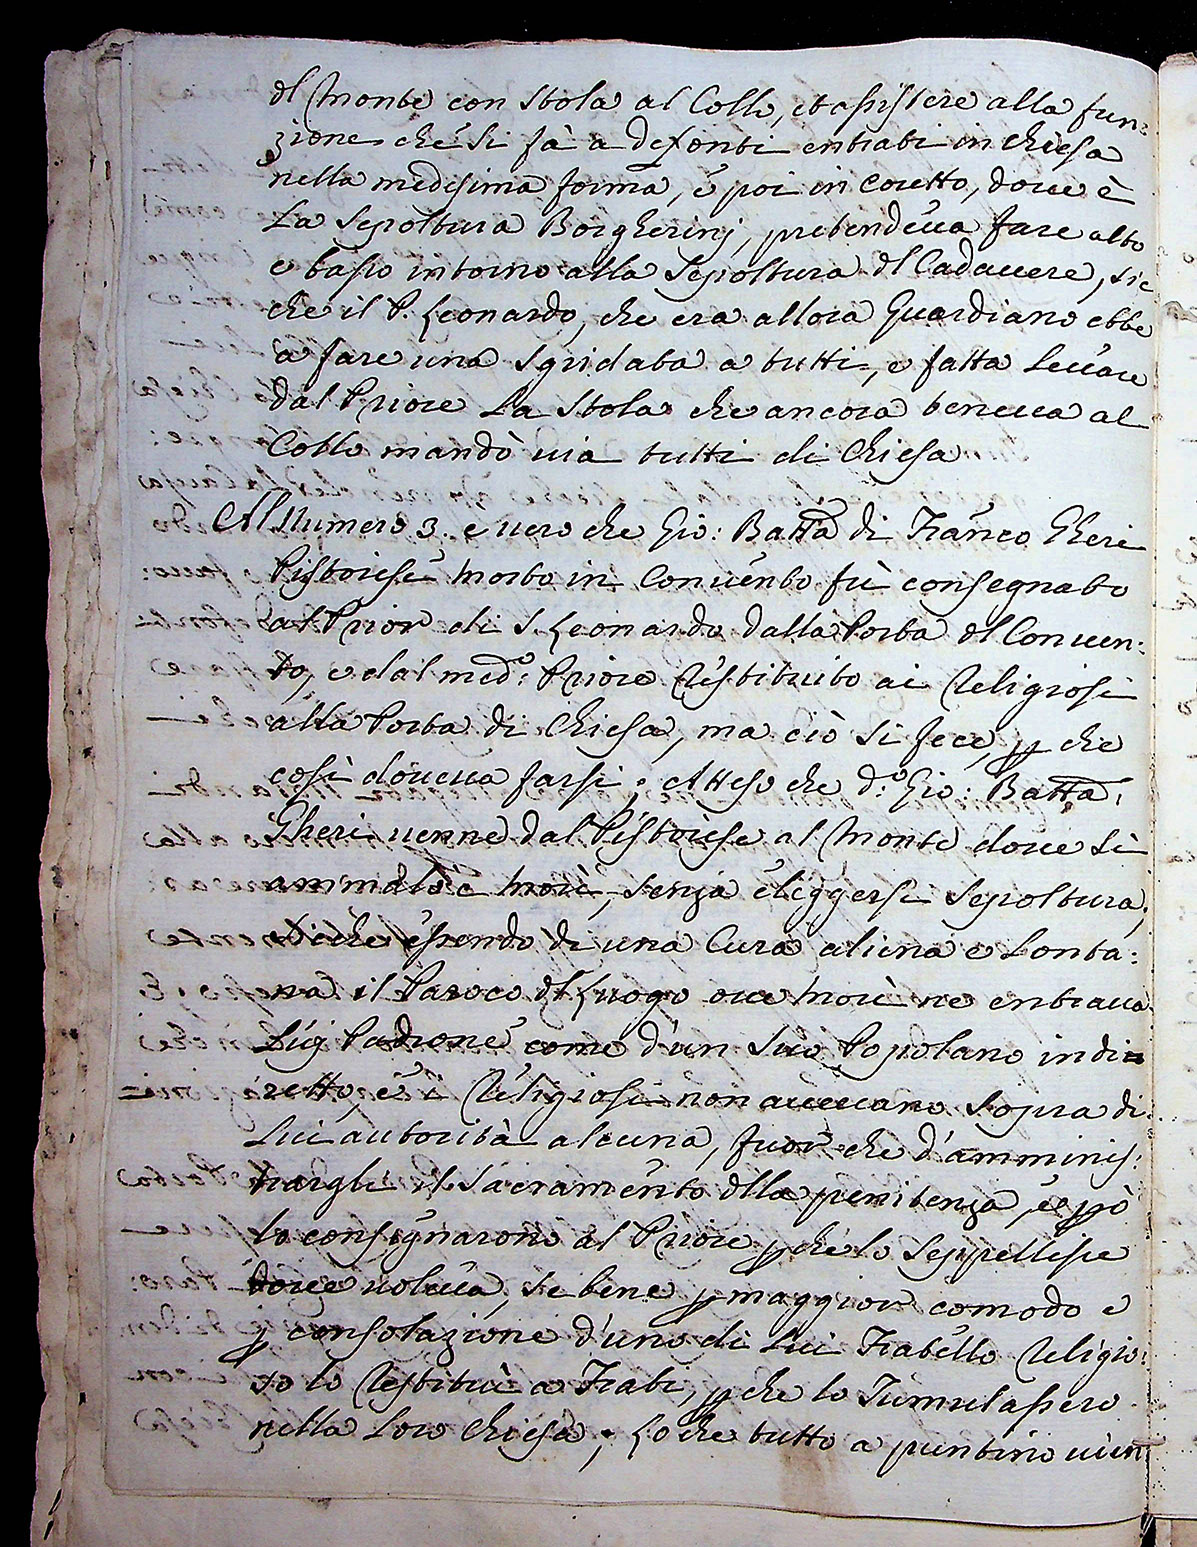 dl Monte con Stola al Collo, et assistere alla fun:
zione che si fà a defonti entrati in chiesa
nella medesima forma, e poi in coretto, dove è
La Sepoltura Borgherinj, pretendeva fare alto
e basso intorno alla Sepoltura dl Cadavere, sic
che il P. Leonardo, che era allora Guardiano ebbe
a fare una sgridata a tutti, e fatta levare
dal Priore La Stola che ancora teneva al
Collo mandò via tutti di Chiesa
Al Numero 3. e vero che Gio: Batta di Franco Gheri
Pistoiese morto in Convento fù consegnato
al Prior di S. Leonardo dalla Porta dl Conven:
to, e dal med.º Priore restituito ai Religiosi
alla Porta di Chiesa, ma ciò si fece, p che
così doveva farsi; Atteso che d.º Gio: Batta:
Gheri venne dal Pistoiese al Monte dove si
ammalò e morì, senza eleggersi Sepoltura,
Siche essendo di una Cura aliena e Lonta:
na il Paroco dl Luogo ove morì ne entrava
Lui Padrone come d'un suo Popolano indi=
retto, e i Religiosi non avevano sopra di
Lui autorità alcuna, fuor che d'amminis:
trargli il Sacramento dlla penitenza, e pò
lo consegnarono al Priore pche lo Seppellisse
dove voleva, se bene p maggior comodo e
p consolazione d'uno di Lui Fratello Religio:
so lo restituì a Frati, pche lo Tumulassero
nella Loro Chiesa; Lo che tutto a puntino vien